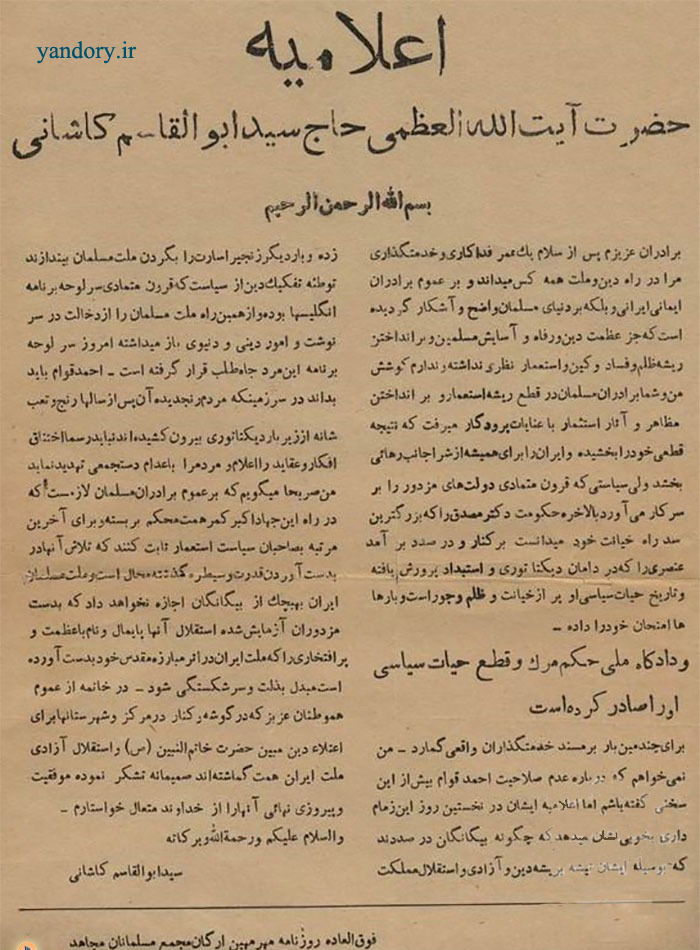 yandory.ir
اعلامیه
حضرت آیت الله العظمی حاج سید ابوالقاسم کاشانی
بسم الله الرحمن الرحیم
برادران عزیزم پس از سلام یك عمر فداکاری و خدمتگذاری
مرا در راه دین و ملت همه کس میداند و بر عموم برادران
ایمانی ایرانی و بلکه بر دنیای مسلمان واضح و آشکار گردیده
است که جز عظمت دین و رفاه و آسایش مسلمین و بر انداختن
ریشه ظلم و فساد و کین و استعمار نظری نداشته و ندارم کوشش
من و شما برادران مسلمان در قطع ریشه استعمار و بر انداختن
مظاهر و آثار استثمار با عنایات پرودگار میرفت که نتیجه
قطعی خود را بخشیده و ایران را برای همیشه از شر اجانب رهائی
بخشد ولی سیاستی که قرون متمادی دولت‌های مزدور را بر
سر کار می آورد بالاخره حکومت دکتر مصدق را که بزرگترین
سد راه خیانت خود میدانست برکنار و در صدد بر آمد
عنصری را که در دامان دیکتا توری و استبداد پرورش یافته
و تاریخ حیات سیاسی او پر از خیانت و ظلم و جور است و بارها
ها امتحان خود را داده ـ
و دادگاه ملی حکم مرك و قطع حیات سیاسی
او را صادر کرده است
برای چندمین بار بر مسند خدمتگذاران واقعی گمارد ـ من
نمی‌خواهم که درباره عدم صلاحیت احمد قوام بیش از این
سخنی گفته باشم اما اعلامیه ایشان در نخستین روز این زمام
داری بخوبی نشان میدهد که چگونه بیگانگان در صددند
که بوسیله ایشان تیشه بریشه دین و آزادی و استقلال مملکت
زده و بار دیگر زنجیر اسارت را بگردن ملت مسلمان بیندازند
توطئه تفکیك دین از سیاست که قرون متمادی سر لوحه برنامه
انگلیسها بوده و از همین راه ملت مسلمان را از دخالت در سر
نوشت و امور دینی و دنیوی باز میداشته امروز سر لوحه
برنامه این مرد جاه طلب قرار گرفته است ـ احمد قوام باید
بداند در سرزمینکه مردم رنجدیده آن پس از سالها رنج و تعب
شانه از زیر بار دیکتاتوری بیرون کشیده اند نباید رسما اختناق
افکار و عقاید را اعلام و مردم را باعدام دستجمعی تهدید نماید
من صریحا میگویم که بر عموم برادران مسلمان لازمست که
در راه این جهاد اکبر کمر همت محکم بربسته و برای آخرین
مرتبه بصاحبان سیاست استعمار ثابت کنند که تلاش آنها در
بدست آوردن قدرت و سیطره گذشته محال است و ملت مسلمان
ایران بهیچك از بیگانگان اجازه نخواهد داد که بدست
مزدوران آزمایش شده استقلال آنها پایمال و نام با عظمت و
پر افتخاری را که ملت ایران در اثر مبارزه مقدس خود بدست آورده
است مبدل بذلت و سرشکستگی شود ـ در خاتمه از عموم
هموطنان عزیز که در گوشه و کنار در مرکز و شهرستانها برای
اعتلاء دین مبین حضرت خاتم النبین (ص) و استقلال آزادی
ملت ایران همت گماشته‌اند صمیمانه تشکر نموده موفقیت
و پیروزی نهائی آنها را از خداوند متعال خواستارم ـ
والسلام علیکم ورحمة الله وبرکاته
سید ابوالقاسم کاشانی
فوق العاده روزنامه مهر میهن ارگان مجمع مسلمانان مجاهد